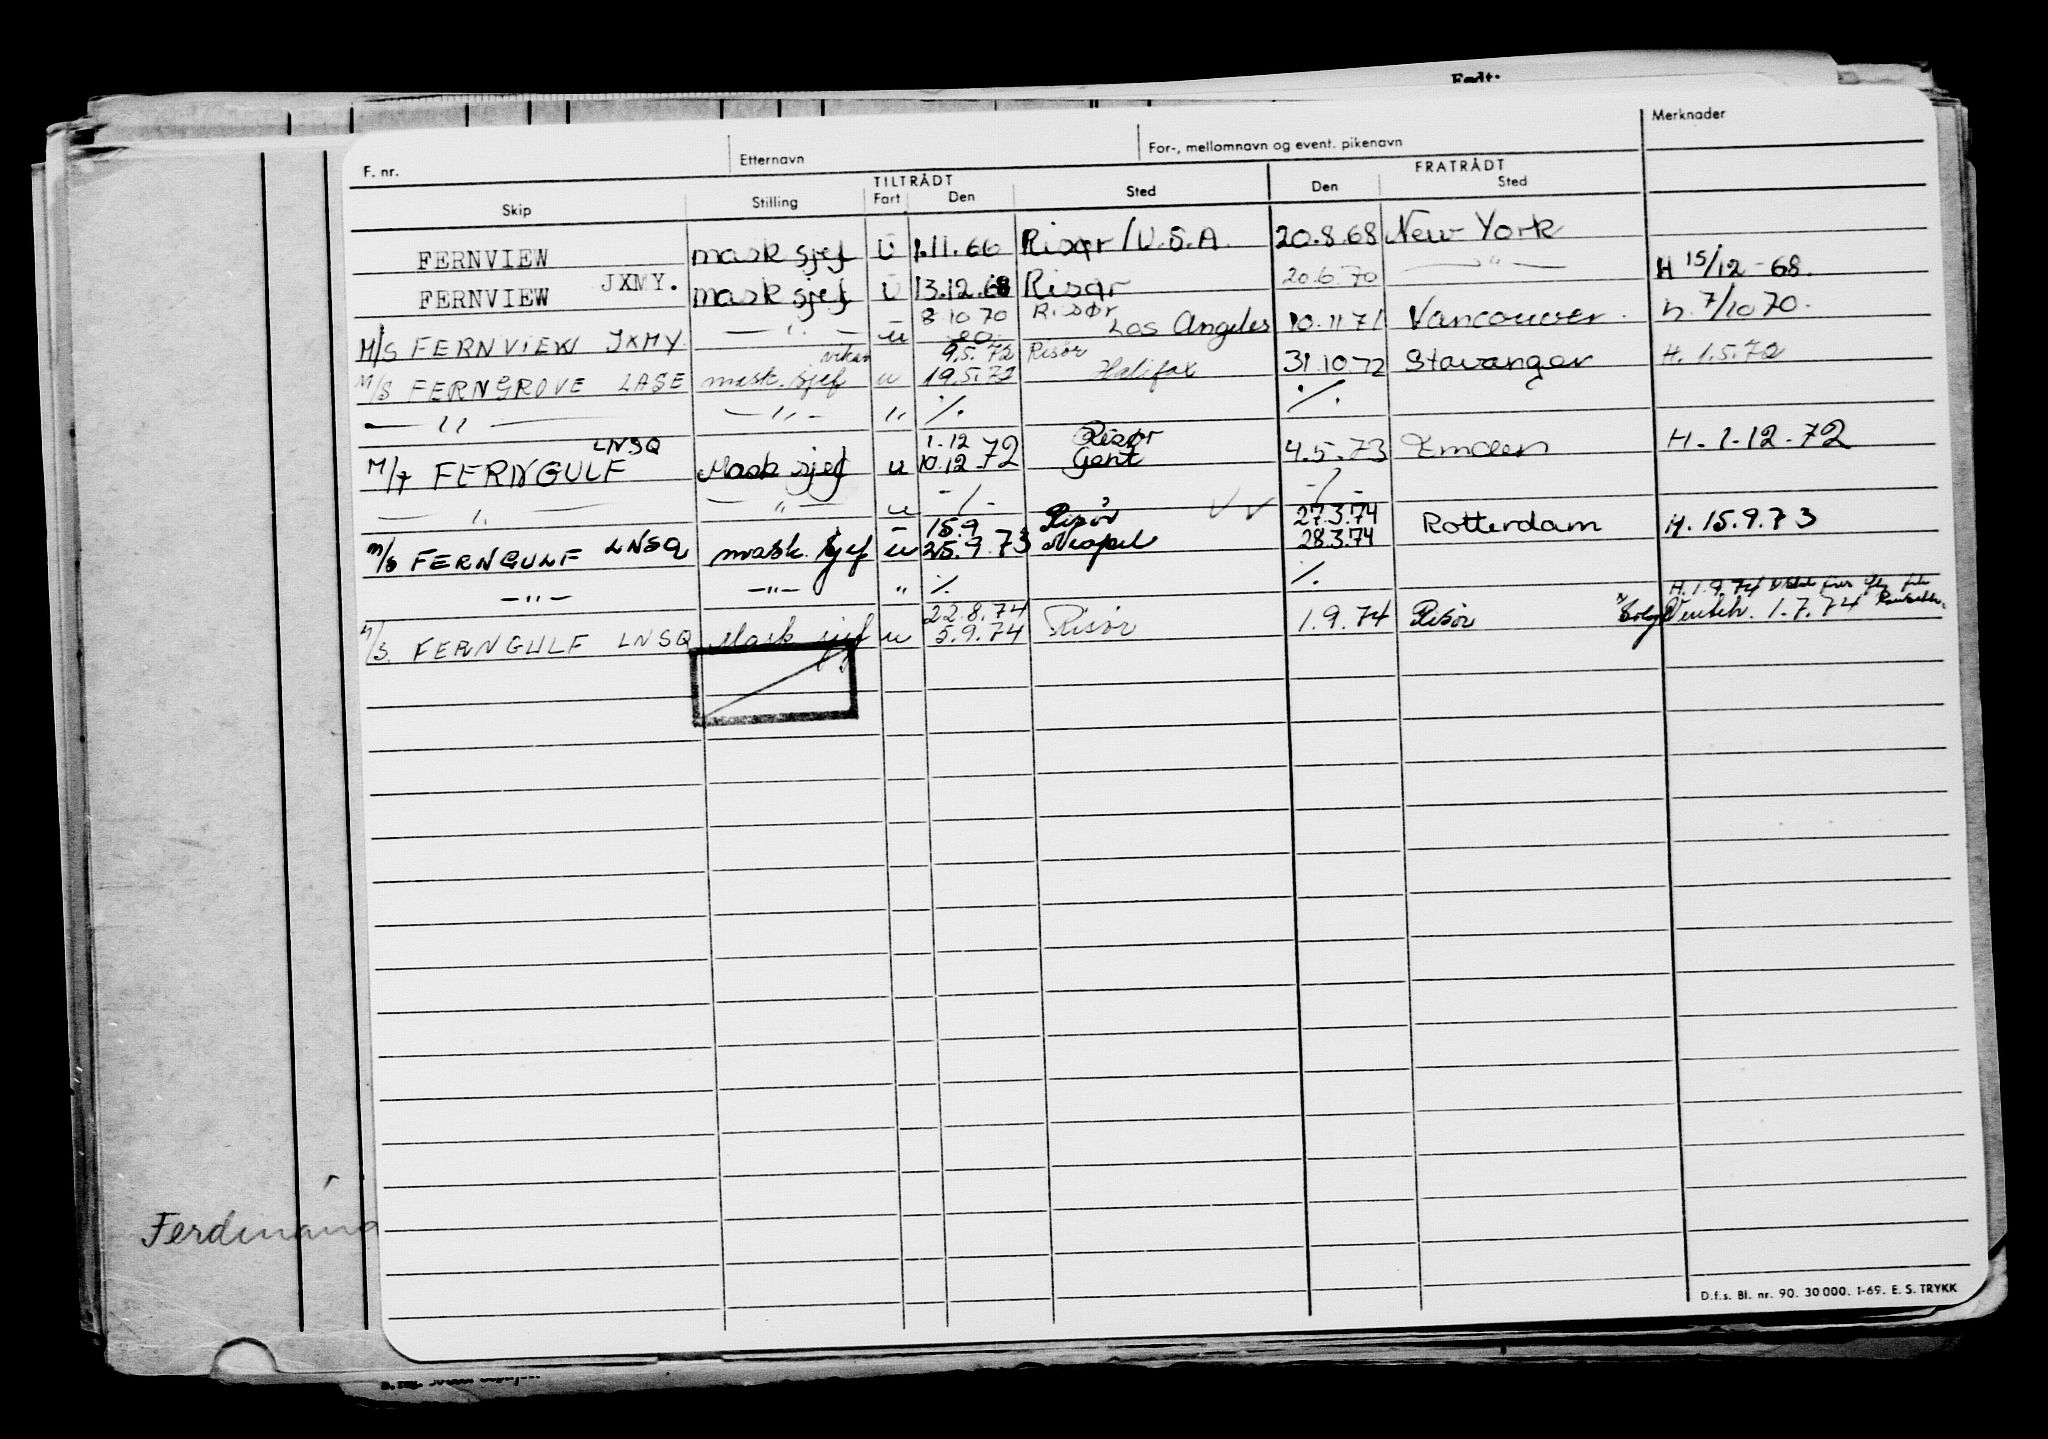 Født:
F. nr. Etternavn For-, mellomnavn og event. pikenavn Merknader
TILTRÅDT FRATRÅDT
Skip Stilling Fart Den Sted Den Sted
FERNVIEW mask sjef U 1.11.66 Risør/U.S.A. 20.8.68 New York
FERNVIEW JXMY. mask sjef U 13.12.68 Risør 20.6.70 — " — H 15/12-68.
8.10.70 Risør
M/S FERNVIEW JXMY — " — u 20 Los Angeles 10.11.71 Vancouver. h. 7/10 70.
vikar 9.5.72 Risør
M/S FERNGROVE LASE mask. sjef u 19.5.72 Halifax 31.10 72 Stavanger H. 1.5.72
— " — — " — " ·/. ·/.
LNSQ 1.12 Risør
M/T FERNGULF Mask sjef u 10.12 72 Gent 4.5.73 Emden H. 1-12-72
— " — — " — u - / - - / -
15.9 Risør 27.3.74
M/S FERNGULF LNSQ mask. sjef u 25.9.73 Neapel 28.3.74 Rotterdam H. 15.9.73
— " — — " — " ·/. ·/.
22.8.74 H. 1.9.74
M/S. FERNGULF LNSQ Mask sjef u 5.9.74 Risør 1.9.74 Risør 1.7.74
Ferdinand
D.f.s. Bl. nr. 90. 30 000. 1-69. E. S. TRYKK